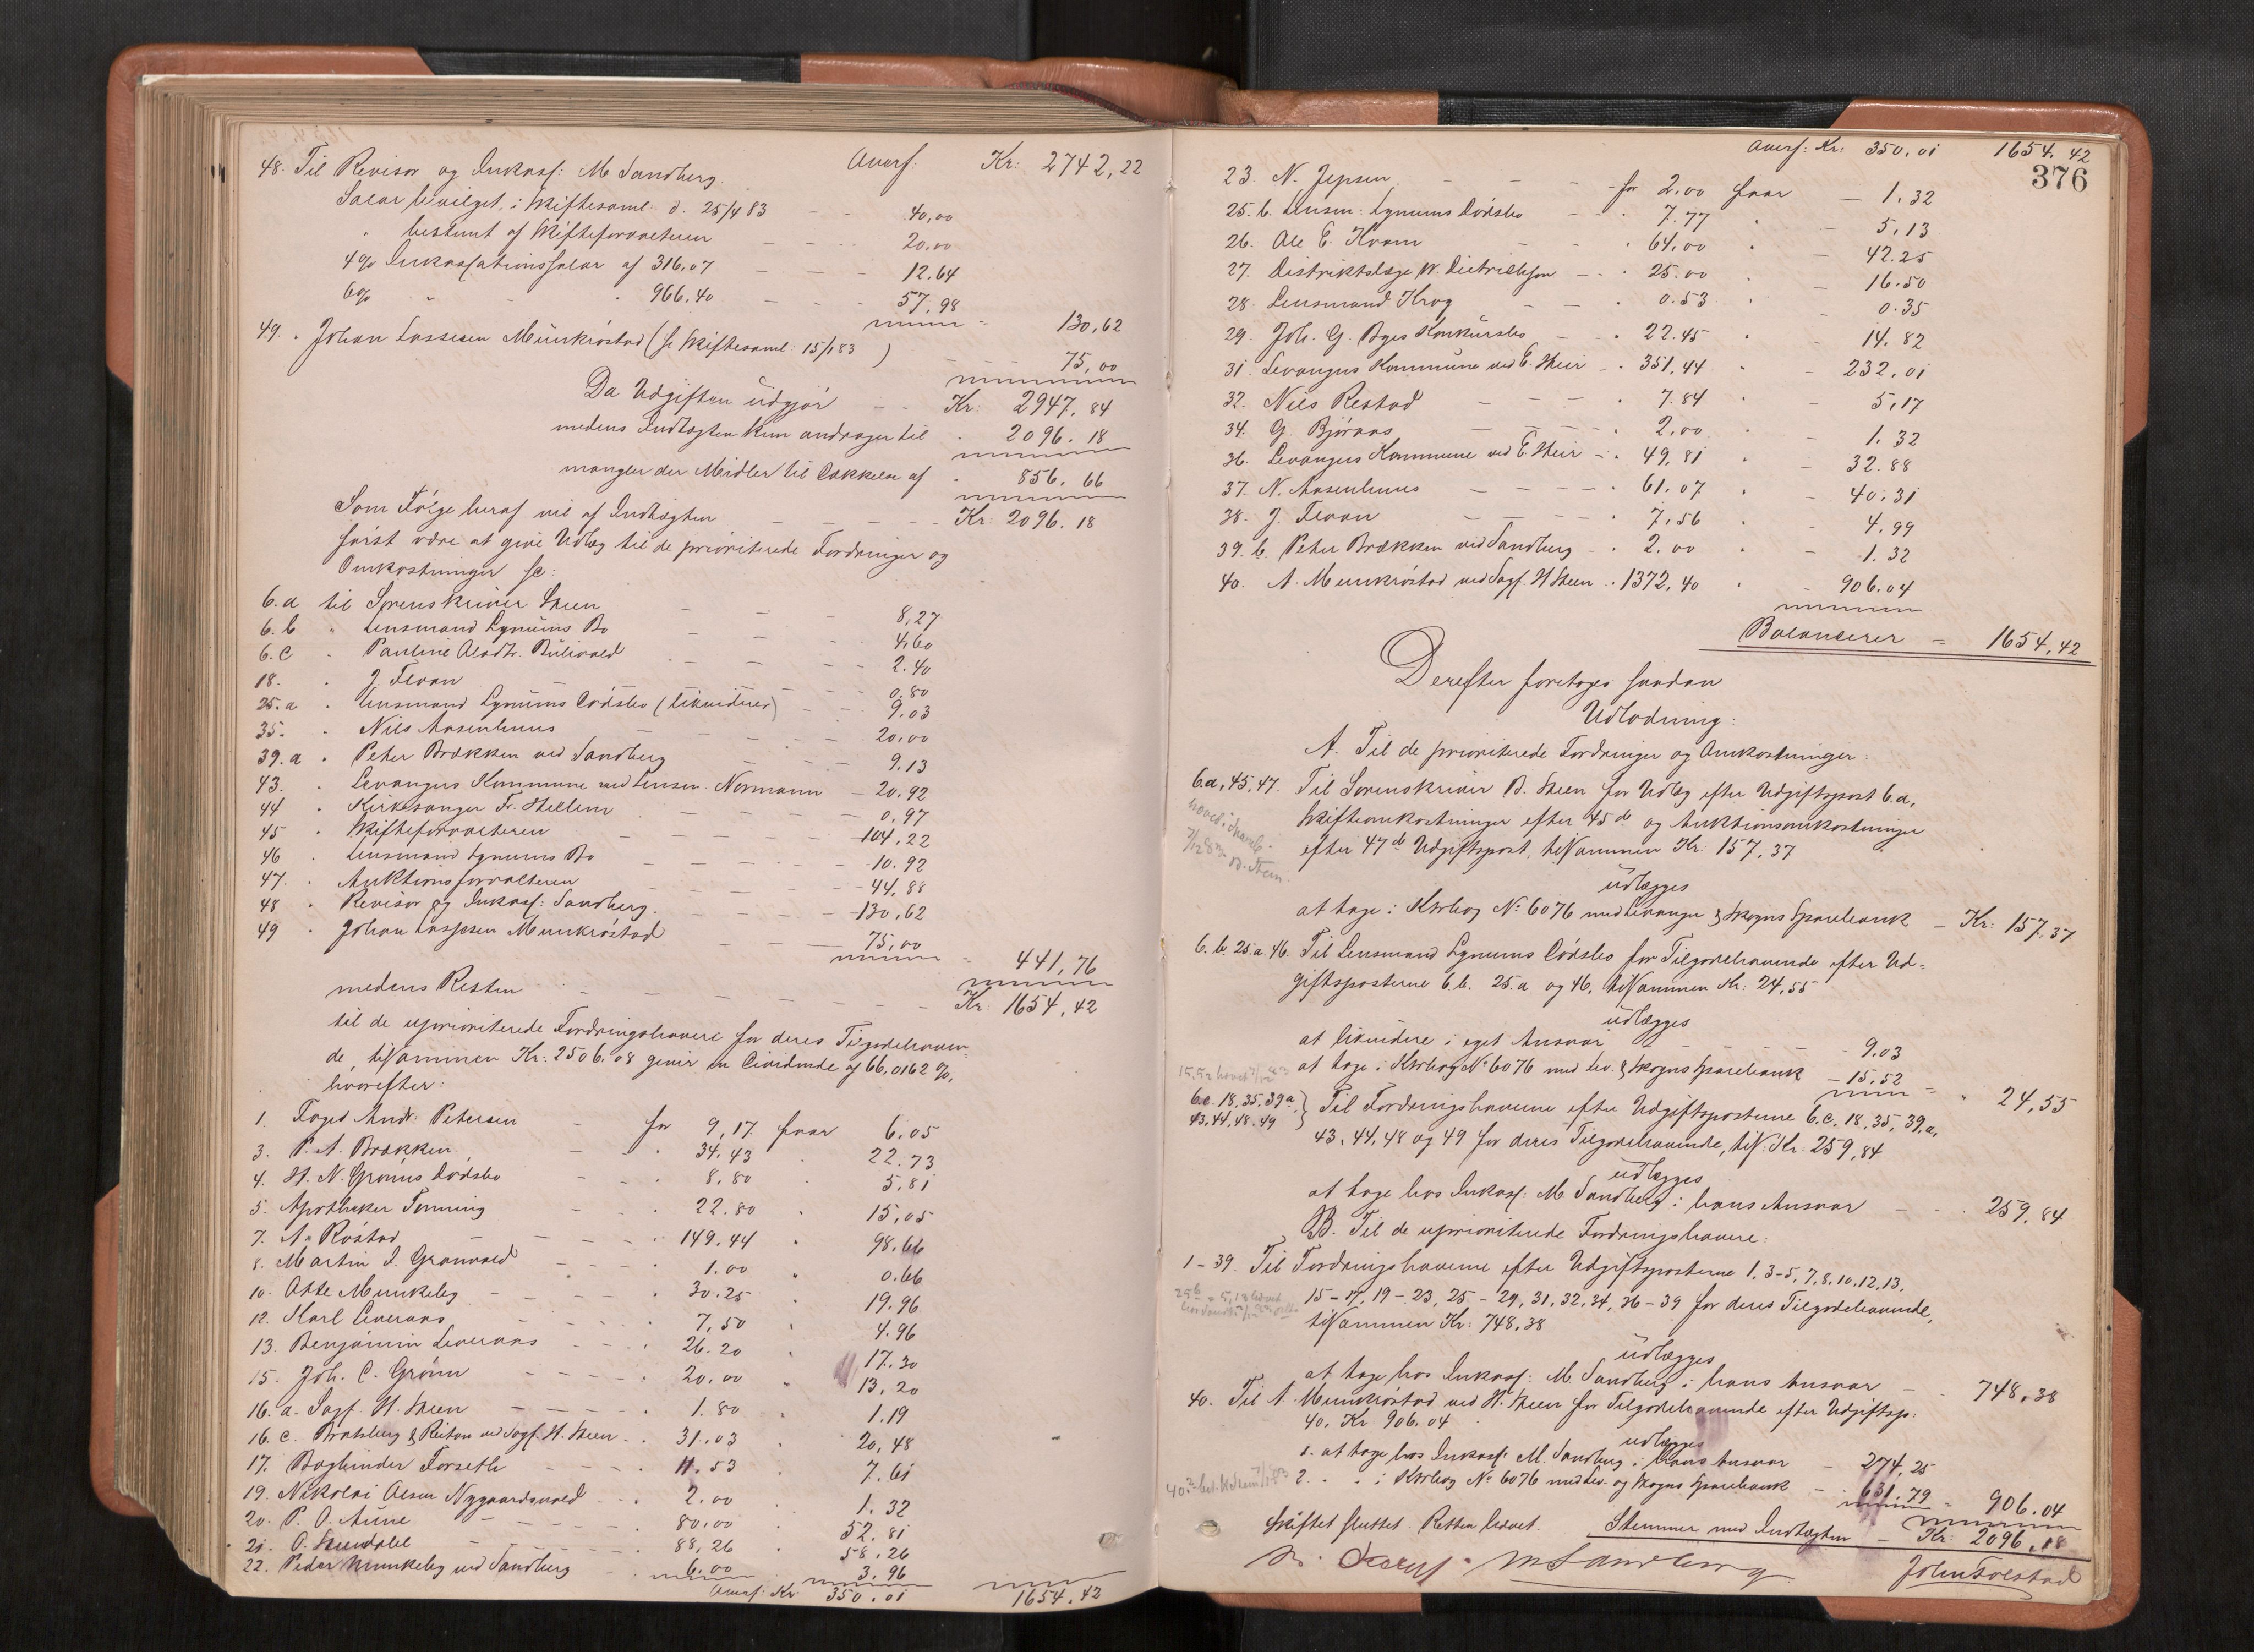 Overf. Kr: 2742,22
48. Til Revisor og Inkass: M Sandberg
Salar bevilget i Skiftesaml. d. 25/4 83 - - 40,00
" bestemt af Skifteforvalteren - - - 20,00
4 % Inkassationssalar af 316,07 - - - 12.64
6 % " - . 966,40 - - - 57,98
130,62
49. " Johan Lassesen Munkrøstad (se Skiftesaml. 15/1 83) - - - 75,00
Da Udgiften udgjør - - Kr: 2947,84
medens Indtægten kun andrager til . 2096.18
mangler der Midler til Dækkelse af . 856.66
Som Følge heraf vil af Indtægten - - - - Kr: 2096.18
først være at give Udlæg til de prioriterede Fordringer og
Omkostninger se:
6.a til Sorenskriver Steen - - - 8,27
6.b " Lensmand Lynums Bo - - - 4,60
6.c . Pauline Olsdtr. - - - 2.40
18. . J. Floan - - - 0.80
25.a . Lensmand Lynums Dødsbo (likviderer) - - 9.03
35. . Nils Aasenhuus - - - 20,00
39.a . Peter Brækken ved Sandberg - - - 9.13
43. . Levanger Kommune ved Lensm. Normann - 20,92
44 . Kirkesanger Fr. - - - 0,97
45 . Skifteforvalteren - - - 104,22
46 . Lensmand Lynums Bo - - - 10.92
47. . Auktionsforvalteren - - - 44,88
48 . Revisor og Inkass: Sandberg. - - - 130,62
49 . Johan Lassesen Munkrøstad - - - 75,00
441,76
medens Resten - - - Kr: 1654,42
til de uprioriterede Fordringshavere for deres Tilgodehaven-
de, tilsammen Kr: 2506.08 giver en Dividende af 66,0162 %,
hvorefter:
1. Foged Andr. Petersen - for 9,17 faar 6.05
3. P. A. Brækken - . 34.43 . 22.73
4. H. N. Grønns Dødsbo - - . 8,80 . 5,81
5. Apotheker Tønning - - . 22.80 . 15,05
7. A. Røstad - - - 149.44 . 98.66
8. Martin I. Granvold - - . 1.00 " 0.66
10. Otte Munkeby - - - . 30.25 . 19.96
12. Karl Leveraas - - - . 7,50 . 4.96
13. Benjamin Leveraas - - - . 26.20 . 17.30
15. Joh. C. Grønn - - - . 20,00 " 13,20
16.a. Sagf. H. Steen - - - . 1.80 . 1.19
16.c. Bratsberg & Reitan ved Sagf. H. Steen - . 31.03 . 20,48
17. Bogbinder Forseth - - - . 11.53 . 7.61
19. Nikolai Olsen Nygaardsvold - - . 2.00 . 1.32
20. P. O. Aune - - - . 80,00 . 52.81
21. O. - - - . 88,26 . 58.26
22. Peder Munkeby ved Sandberg - . 6.00 . 3.96
Overf: Kr 350.01 1654.42
Overf: Kr: 350,01 1654.42
376
23. N. Jepsen - - - for 2,00 faar - 1.32
25.b. Lensm: Lynums Dødsbo - - . 7.77 . - 5,13
26. Ole E. Kvam - - . 64,00 . - 42.25
27. Distriktslæge W. Dietrichson - - . 25.00 . - 16.50
28. Lensmand Krog - - . 0.53 . - 0.35
29. Joh. G. Byes Konkursbo - . 22.45 . - 14.82
31. Levanger Kommune ved E. Steir - . 351,44 . - 232.01
32. Nils Restad - - - . 7.84 . - 5,17
34. G. Bjøraas - - - . 2,00 . - 1.32
36. Levangers Kommune ved E Steir - . 49,81 . - 32.88
37. N. Aasenhuus - - - . 61.07 . - 40.31
38. J. Floan - - - . 7,56 . - 4.99
39.b. Peter Brækken ved Sandberg - . 2.00 . - 1.32
40. A. Munkrøstad ved Sagf. H Steen . 1372,40 . - 906.04
Balancerer - 1654,42
Derefter foretages saadan
Udlodning:
A. Til de prioriterede Fordringer og Omkostninger:
6.a, 45, 47. Til Sorenskriver B. Steen for Udlæg efter Udgiftspost 6.a,
Skifteomkostninger efter 45de og Auktionsomkostninger
efter 47de Udgiftspost, tilsammen Kr: 157,37
udlægges
at tage i Ktrbog No 6076 med Levanger & Skogns Sparebank - Kr: 157.37
6.b. 25.a. 46. Til Lensmand Lynums Dødsbo for Tilgodehavende efter Ud-
giftsposterne 6.b. 25.a og 46, tilsammen Kr: 24,55
udlægges
at likvidere i eget Ansvar - - - 9.03
at tage i Ktrbog No 6076 med Lev. & Skogns Sparebank - 15,52
" 24,55
6.c. 18. 35. 39a } Til Fordringshaverne efter Udgiftsposterne 6.c, 18, 35, 39.a,
43, 44, 48. 49
43, 44, 48 og 49 for deres Tilgodehavende, tils. Kr. 259,84
udlægges
at tage hos Inkass: M. Sandberg i hans Ansvar - - 259,84
B. Til de uprioriterede Fordringshavere:
1-39. Til Fordringshaverne efter Udgiftsposterne 1, 3-5, 7, 8, 10, 12, 13,
15-17, 19-23, 25-29, 31, 32, 34, 36-39 for deres Tilgodehavende,
tilsammen Kr: 748,38
udlægges
at tage hos Inkass: M. Sandberg i hans Ansvar - - 748,38
40. Til A. Munkrøstad ved H. Steen for Tilgodehavende efter Udgiftsp:
40, Kr. 906.04
udlægges
1. at tage hos Inkass: M. Sandberg i hans Ansvar - 274,25
2. . . i Ktrbog No 6076 med Lev. og Skogns Sparebank - 631.79
906.04
Skiftet sluttet. Retten hævet. Stemmer med Indtægten - Kr: 2096,18
M Sandberg
John Tolstad